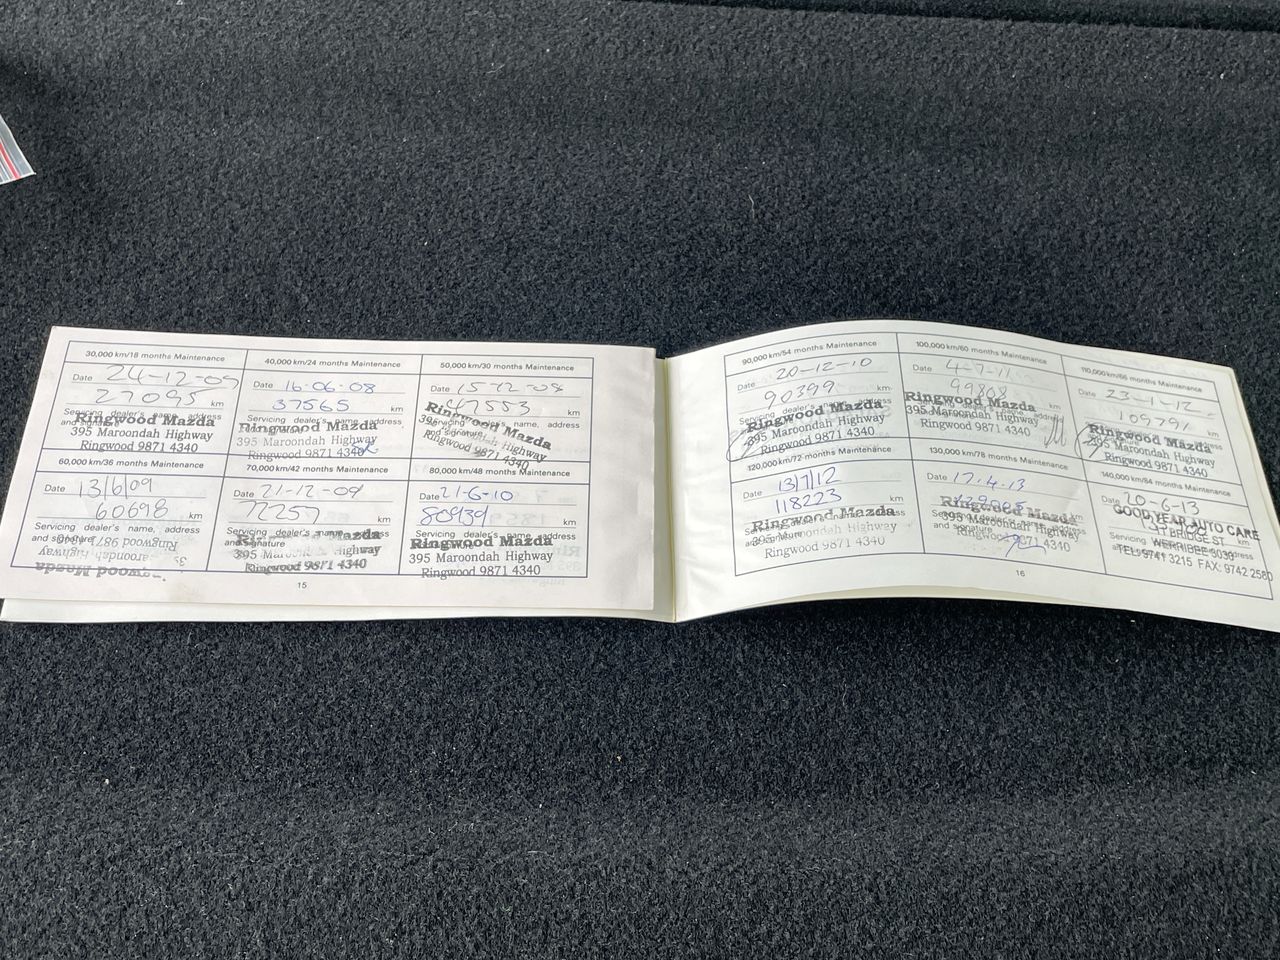 30,000 km/18 months Maintenance
Date 24-12-07
27095 km
Servicing dealer's name, address
and signature
Ringwood Mazda
395 Maroondah Highway
Ringwood 9871 4340
40,000 km/24 months Maintenance
Date 16.06.08
37565 km
Servicing dealer's name, address
and signature
Ringwood Mazda
395 Maroondah Highway
Ringwood 9871 4340
50,000 km/30 months Maintenance
Date 15-12-08
47553 km
Servicing dealer's name, address
and signature
Ringwood Mazda
395 Maroondah Highway
Ringwood 9871 4340
60,000 km/36 months Maintenance
Date 13/6/09
60698 km
Servicing dealer's name, address
and signature
Ringwood 9871 4340
Maroondah Highway
Ringwood Mazda
70,000 km/42 months Maintenance
Date 21-12-09
72257 km
Servicing dealer's name, address
and signature
Ringwood Mazda
395 Maroondah Highway
Ringwood 9871 4340
80,000 km/48 months Maintenance
Date 21-6-10
80939 km
Servicing dealer's name, address
and signature
Ringwood Mazda
395 Maroondah Highway
Ringwood 9871 4340
15
90,000 km/54 months Maintenance
Date 20-12-10
90399 km
Servicing dealer's name, address
and signature
Ringwood Mazda
395 Maroondah Highway
Ringwood 9871 4340
100,000 km/60 months Maintenance
Date 4-7-11
99808 km
Ringwood Mazda
395 Maroondah Highway
Ringwood 9871 4340
110,000 km/66 months Maintenance
Date 23-1-12
109791 km
Ringwood Mazda
395 Maroondah Highway
Ringwood 9871 4340
120,000 km/72 months Maintenance
Date 13/7/12
118223 km
Servicing dealer's name, address
and signature
Ringwood Mazda
395 Maroondah Highway
Ringwood 9871 4340
130,000 km/78 months Maintenance
Date 17.4.13
km
Servicing dealer's name, address
and signature
Ringwood Mazda
395 Maroondah Highway
Ringwood 9871 4340
140,000 km/84 months Maintenance
Date 20-6-13
GOOD YEAR AUTO CARE
BRIDGE ST km
WERRIBEE 3030
TEL: 9741 3215 FAX: 9742 2580
16